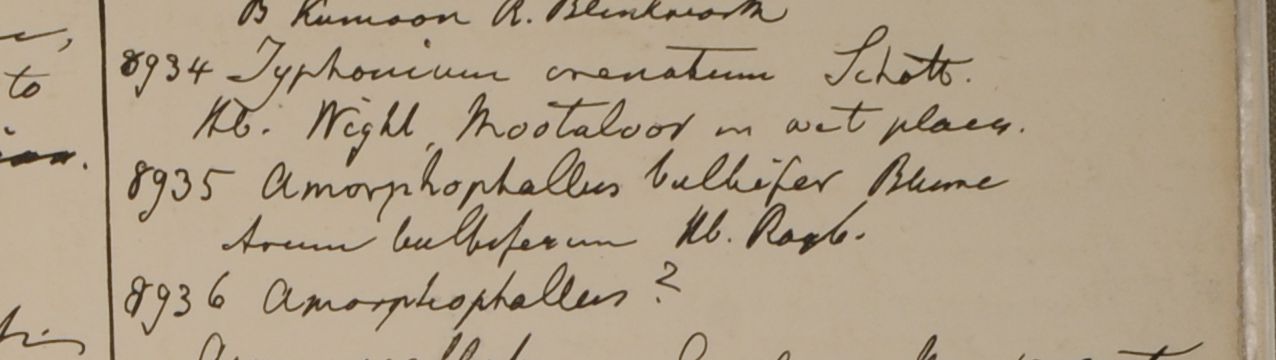 B Kumaon R. Blinkworth
to
8934 Typhonium crenatum Schott.
Hb. Wight, Mootaloor in wet places.
8935 Amorphophallus bulbifer Blume
Arum bulbiferum Hb. Roxb.
8936 Amorphophallus?